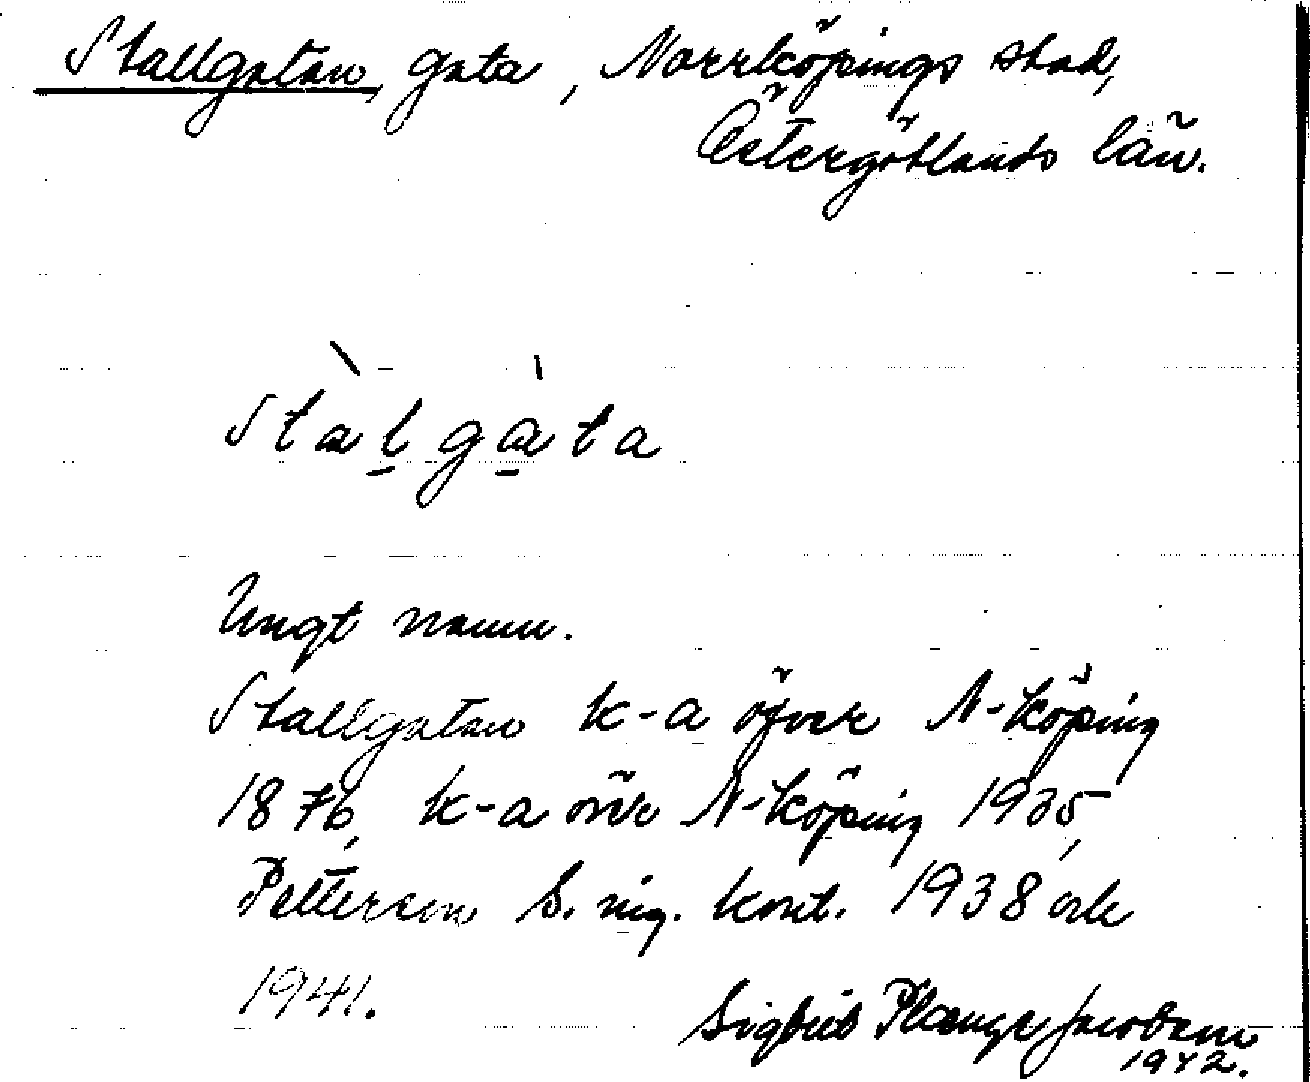 Stallgatan, gata, Norrköpings stad,
Östergötlands län.
Stalgata
Ungt namn.
Stallgatan k-a öfver N-köping
1876, k-a över N-köping 1935,
Petterson S. ing. kont. 1938 och
1941.
Sigbrit Plænge Jacobson
1942.